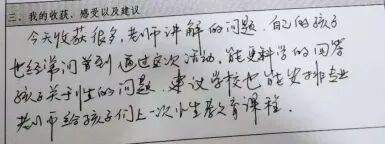 三、我的收获、感受以及建议
今天收获很多,老师讲解的问题.自己的孩子
也经常问首到通过这次活动,能更科学的回答
孩子关于性的问题.建议学校也能安排专业
老师给孩子们上一次小生教育课程.